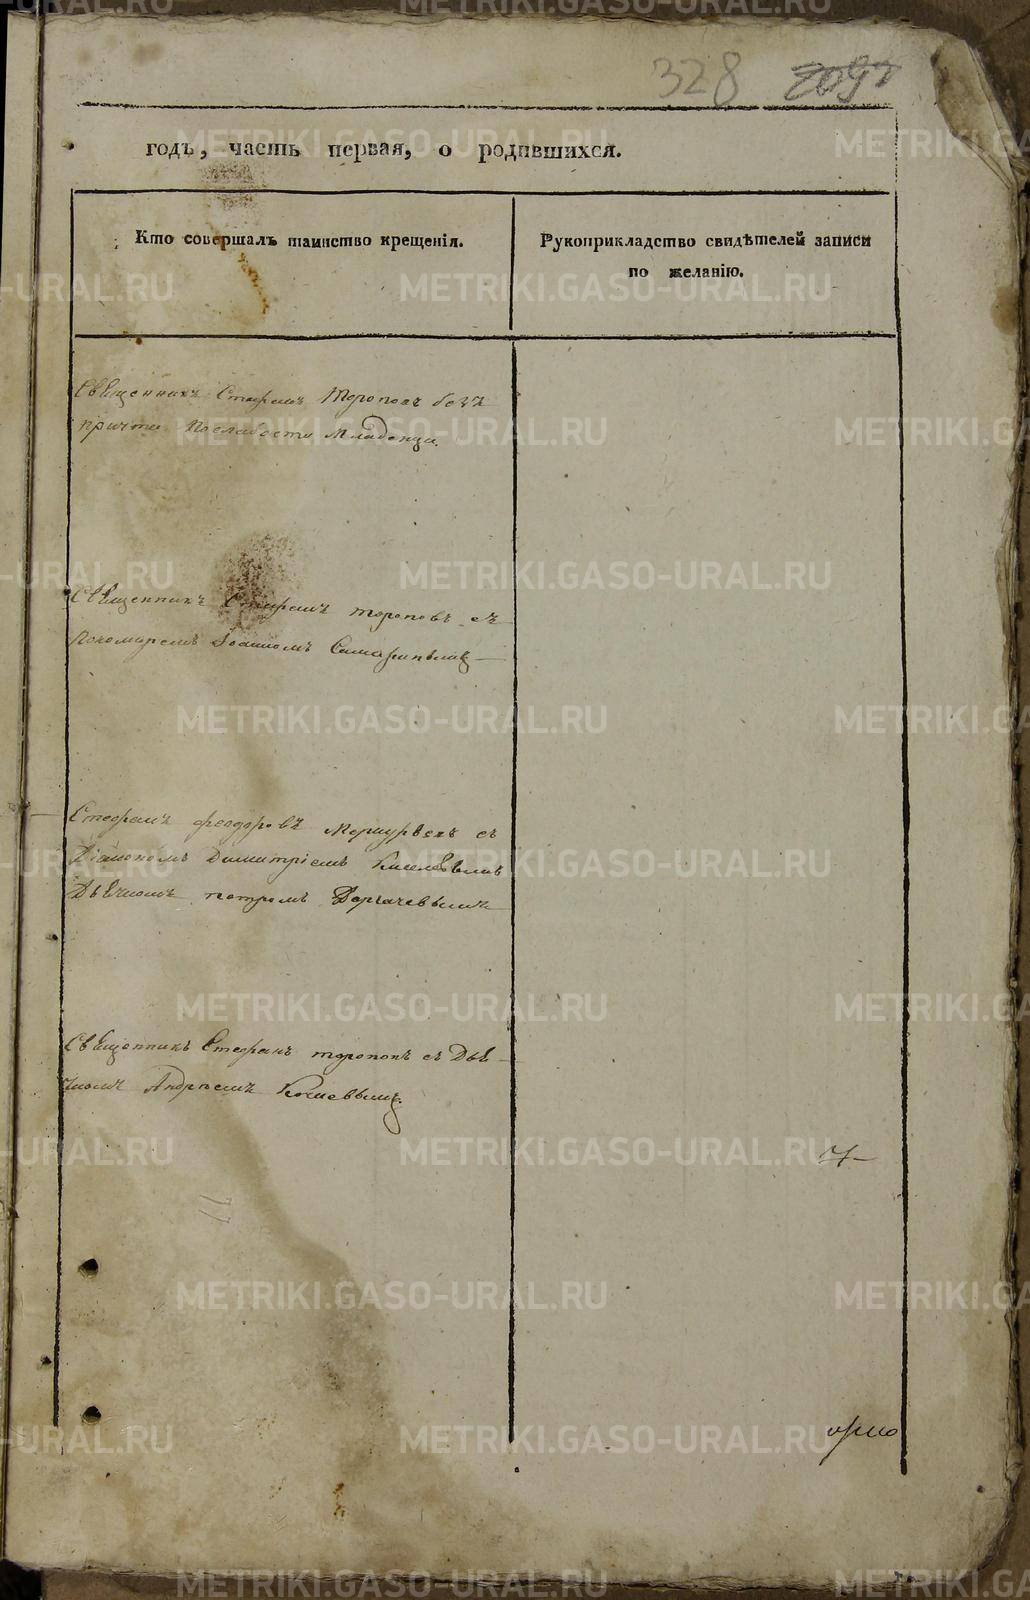 328
годъ, часть первая, о родившихся.
Кто совершалъ таинство крещенія.
Рукоприкладство свидѣтелей записи
по желанію.
Священникъ Стефанъ Тороповъ безъ
причта послабости Младенца.
Священникъ Стефанъ тороповъ съ
Пономаремъ Іоанномъ
Стефанъ феодоровъ съ
Діакономъ Димитріемъ
Дьячкомъ петромъ
Священникъ Стефанъ тороповъ съ Дья
чкомъ Андреемъ
METRIKI.GASO-URAL.RU